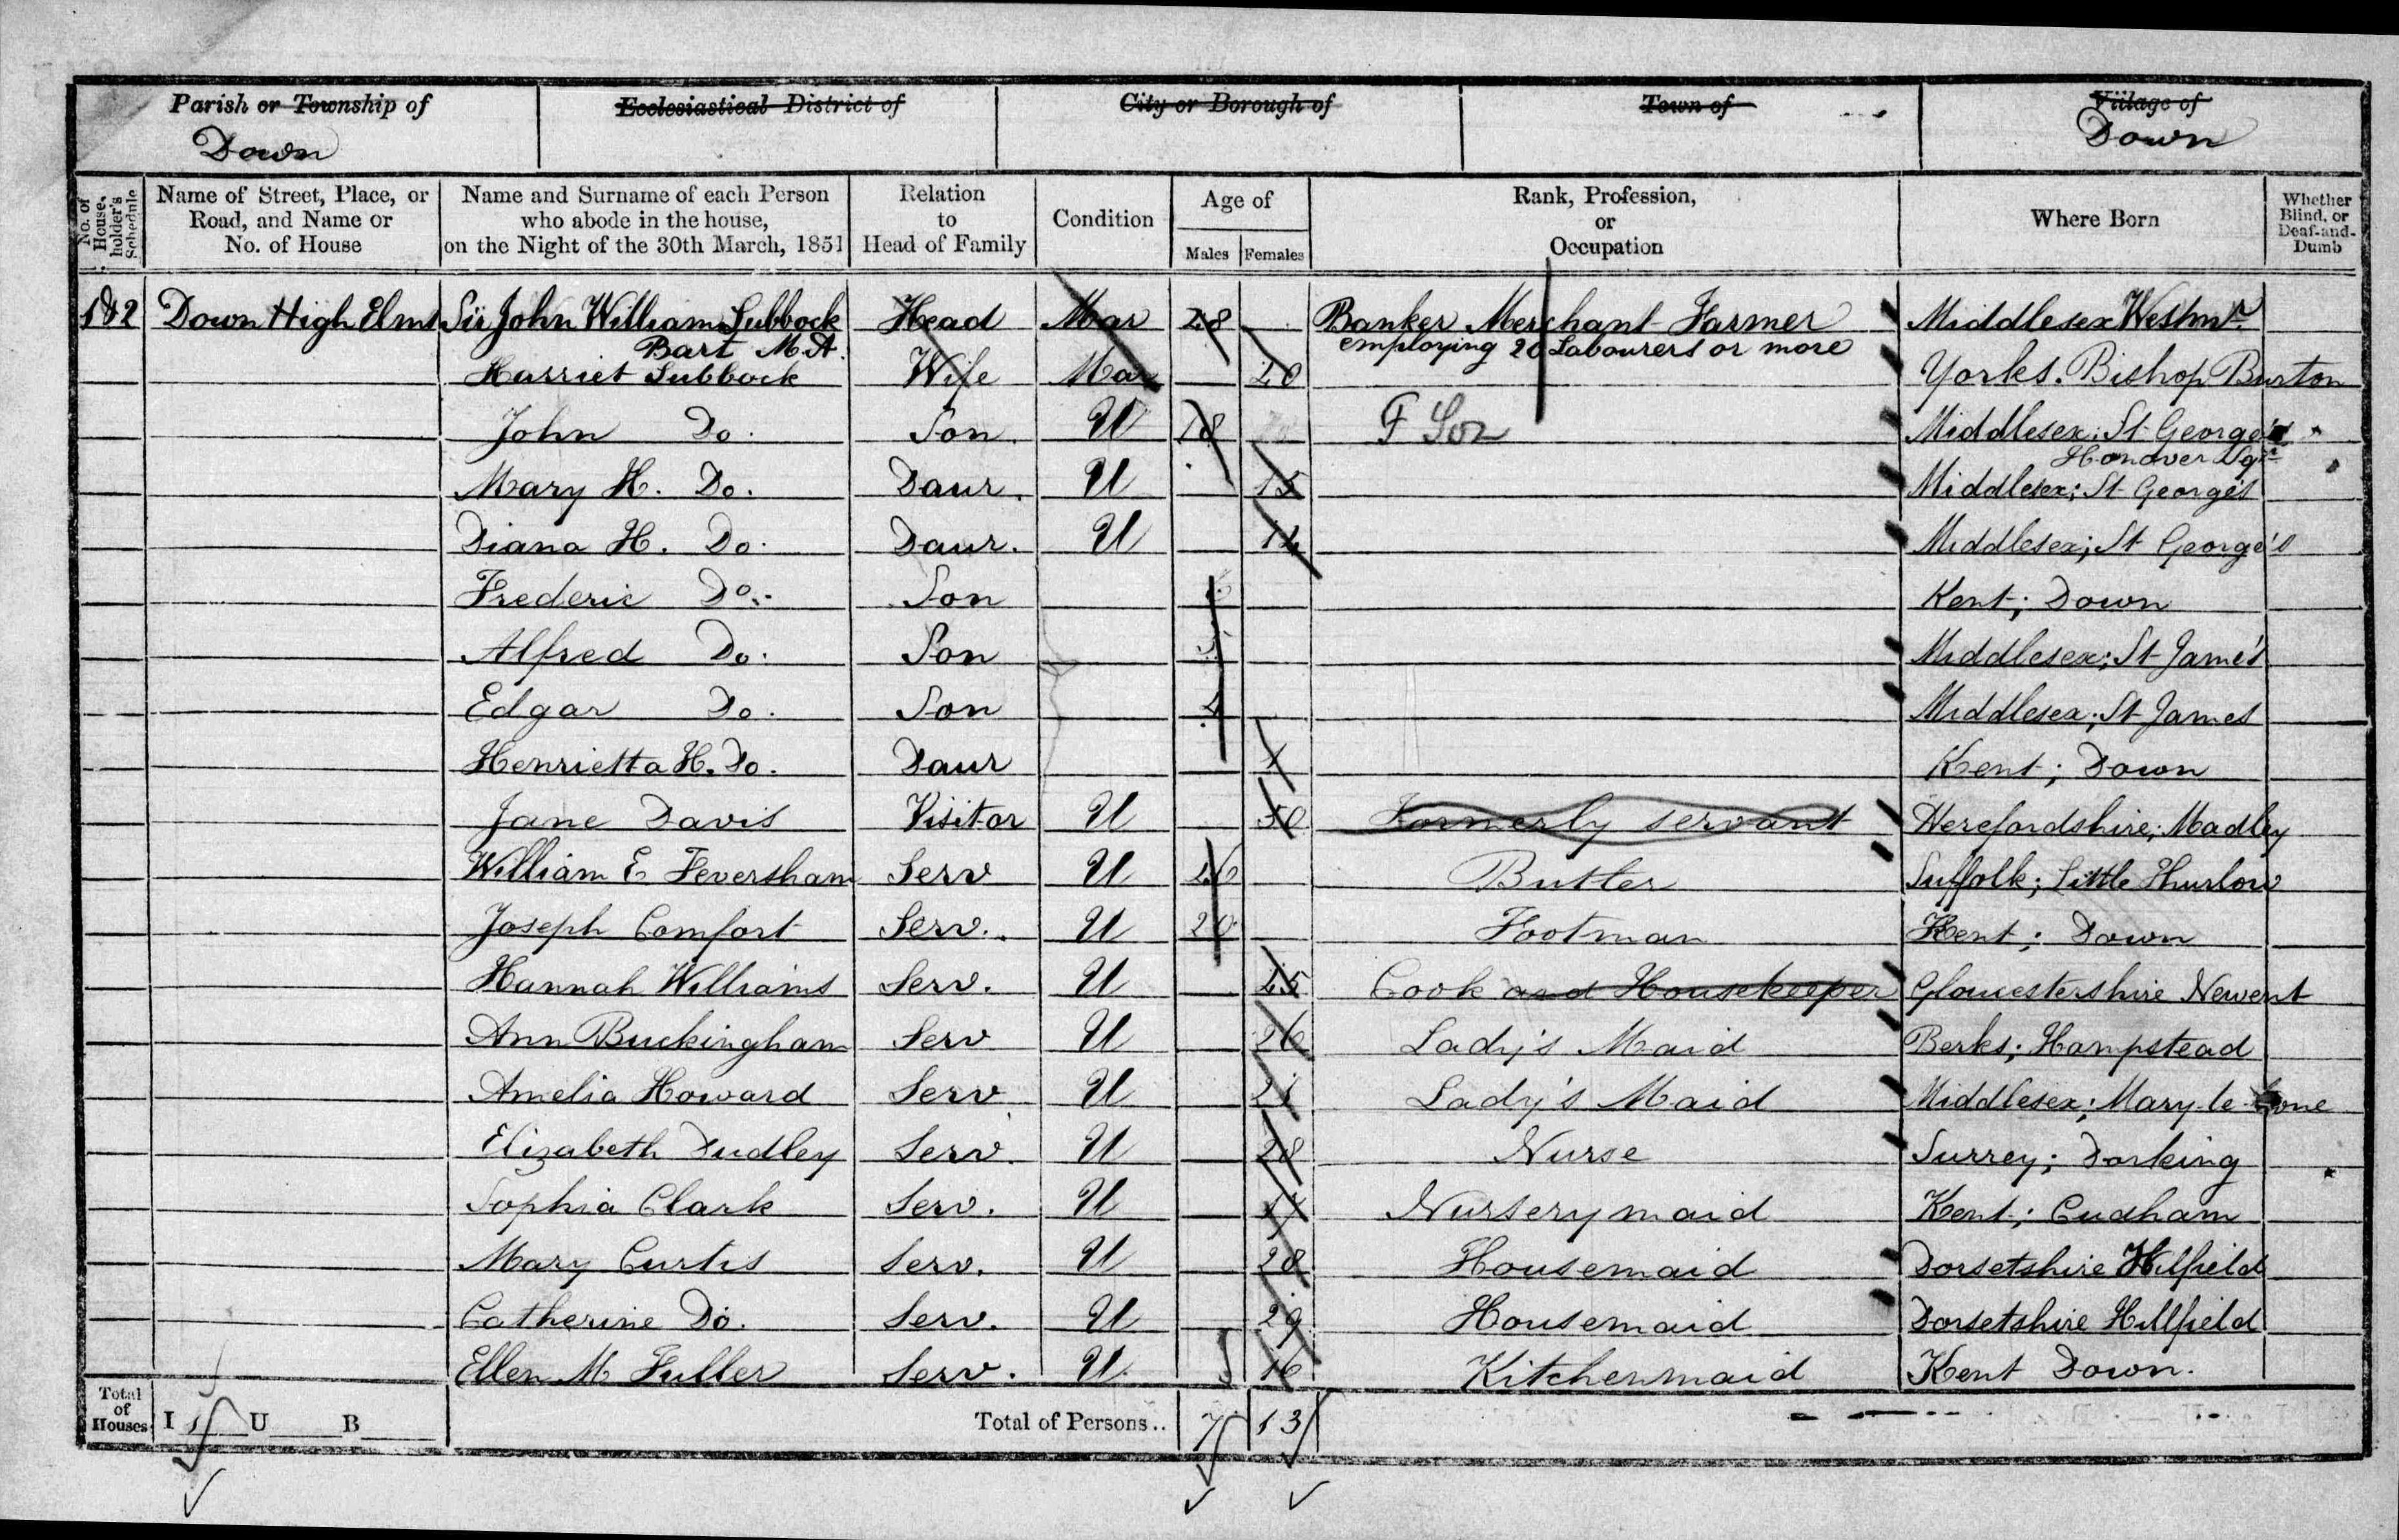 Parish or Township of
Down
Ecclesiastical District of
City or Borough of
Town of
Village of
Down
No. of House-holder's Schedule
Name of Street, Place, or Road, and Name or No. of House
Name and Surname of each Person who abode in the house, on the Night of the 30th March, 1851
Relation to Head of Family
Condition
Age of
Males Females
Rank, Profession, or Occupation
Where Born
Whether Blind, or Deaf-and-Dumb
Down High Elms Sir John William Lubbock Bart M.A. Head Mar Banker Merchant Farmer employing 20 Labourers or more Middlesex Westmr
Harriet Lubbock Wife Mar Yorks. Bishop Burton
John Do. Son U F Son Middlesex; St George's Hanover Sqr
Mary H. Do. Daur. U 15 Middlesex; St George's
Diana H. Do. Daur. U Middlesex; St George's
Frederic Do. Son Kent; Down
Alfred Do. Son 5 Middlesex; St Jame's
Edgar Do. Son 4 Middlesex; St James
Henrietta H. Do. Daur Kent; Down
Jane Davis Visitor U 50 Formerly servant Herefordshire; Madley
William E Feversham Serv U Butler Suffolk; Little Thurlow
Joseph Comfort Serv. U 20 Footman Kent; Down
Hannah Williams Serv. U Cook and Housekeeper Gloucestershire Newent
Ann Buckingham Serv U 26 Lady's Maid Berks; Hampstead
Amelia Howard Serv U 21 Lady's Maid Middlesex; Mary-le-bone
Elizabeth Dudley Serv. U 28 Nurse Surrey; Dorking
Sophia Clark Serv. U Nurserymaid Kent; Cudham
Mary Curtis Serv. U 28 Housemaid Dorsetshire Hilfield
Catherine Do. Serv. U 29 Housemaid Dorsetshire Hillfield
Ellen M Fuller Serv. U 16 Kitchenmaid Kent Down.
Total of Houses I 1 U B Total of Persons.. 7 13